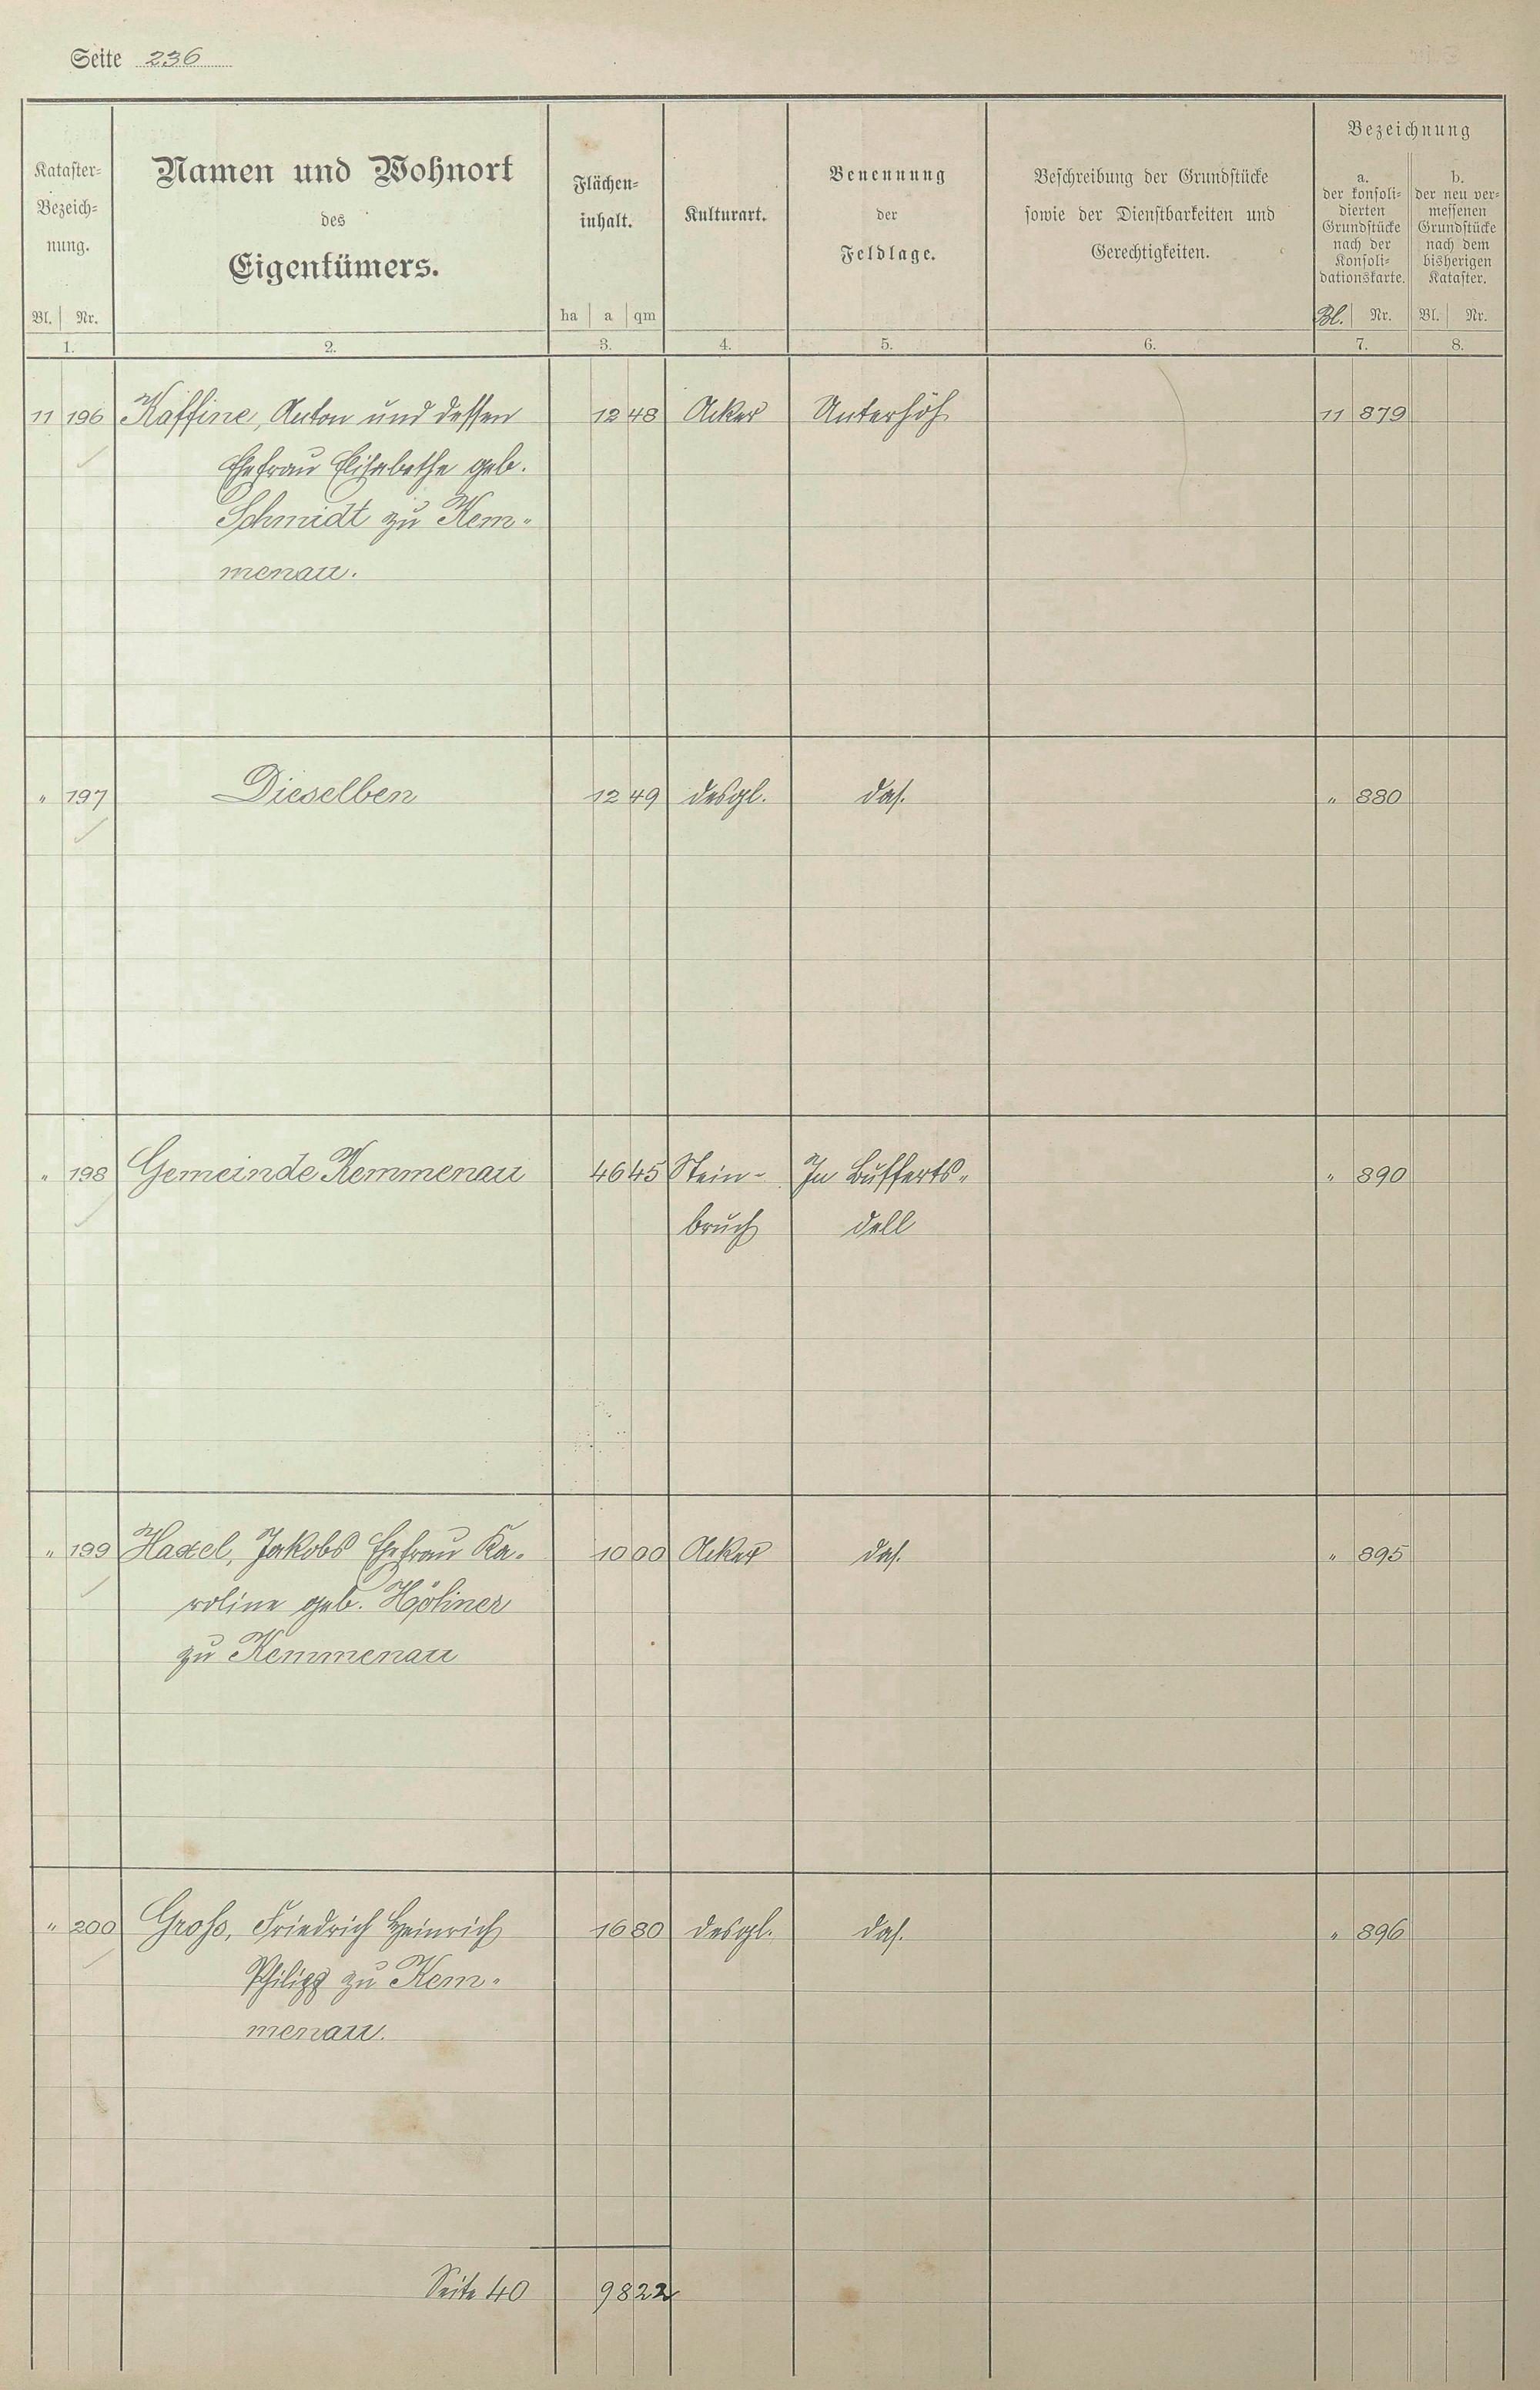 Seite 236
Kataster-Bezeich-nung.
Namen und Wohnort des Eigentümers.
Flächen-inhalt.
Kulturart.
Benennung der Feldlage.
Beschreibung der Grundstücke sowie der Dienstbarkeiten und Gerechtigkeiten.
Bezeichnung
a. der konsoli-dierten Grundstücke nach der Konsoli-dationskarte.
b. der neu ver-messenen Grundstücke nach dem bisherigen Kataster.
Bl. Nr. ha a qm Bl. Nr. Bl. Nr.
1. 2. 3. 4. 5. 6. 7. 8.
11 196 Kaffine, Anton und dessen 12 48 Acker Unterhöh 11 879
Ehefrau Elisabethe geb.
Schmidt zu Kem-
menau.
" 197 Dieselben 12 49 desgl. das. " 880
" 198 Gemeinde Kemmenau 46 45 Stein- In Bufferts- " 890
bruch dell
" 199 Haxel, Jakobs Ehefrau Ka- 10 00 Acker das. " 895
roline geb. Höhner
zu Kemmenau
" 200 Groß, Friedrich Heinrich 16 80 desgl. das. " 896
Philipp zu Kem-
menau.
Seite 40 98 22